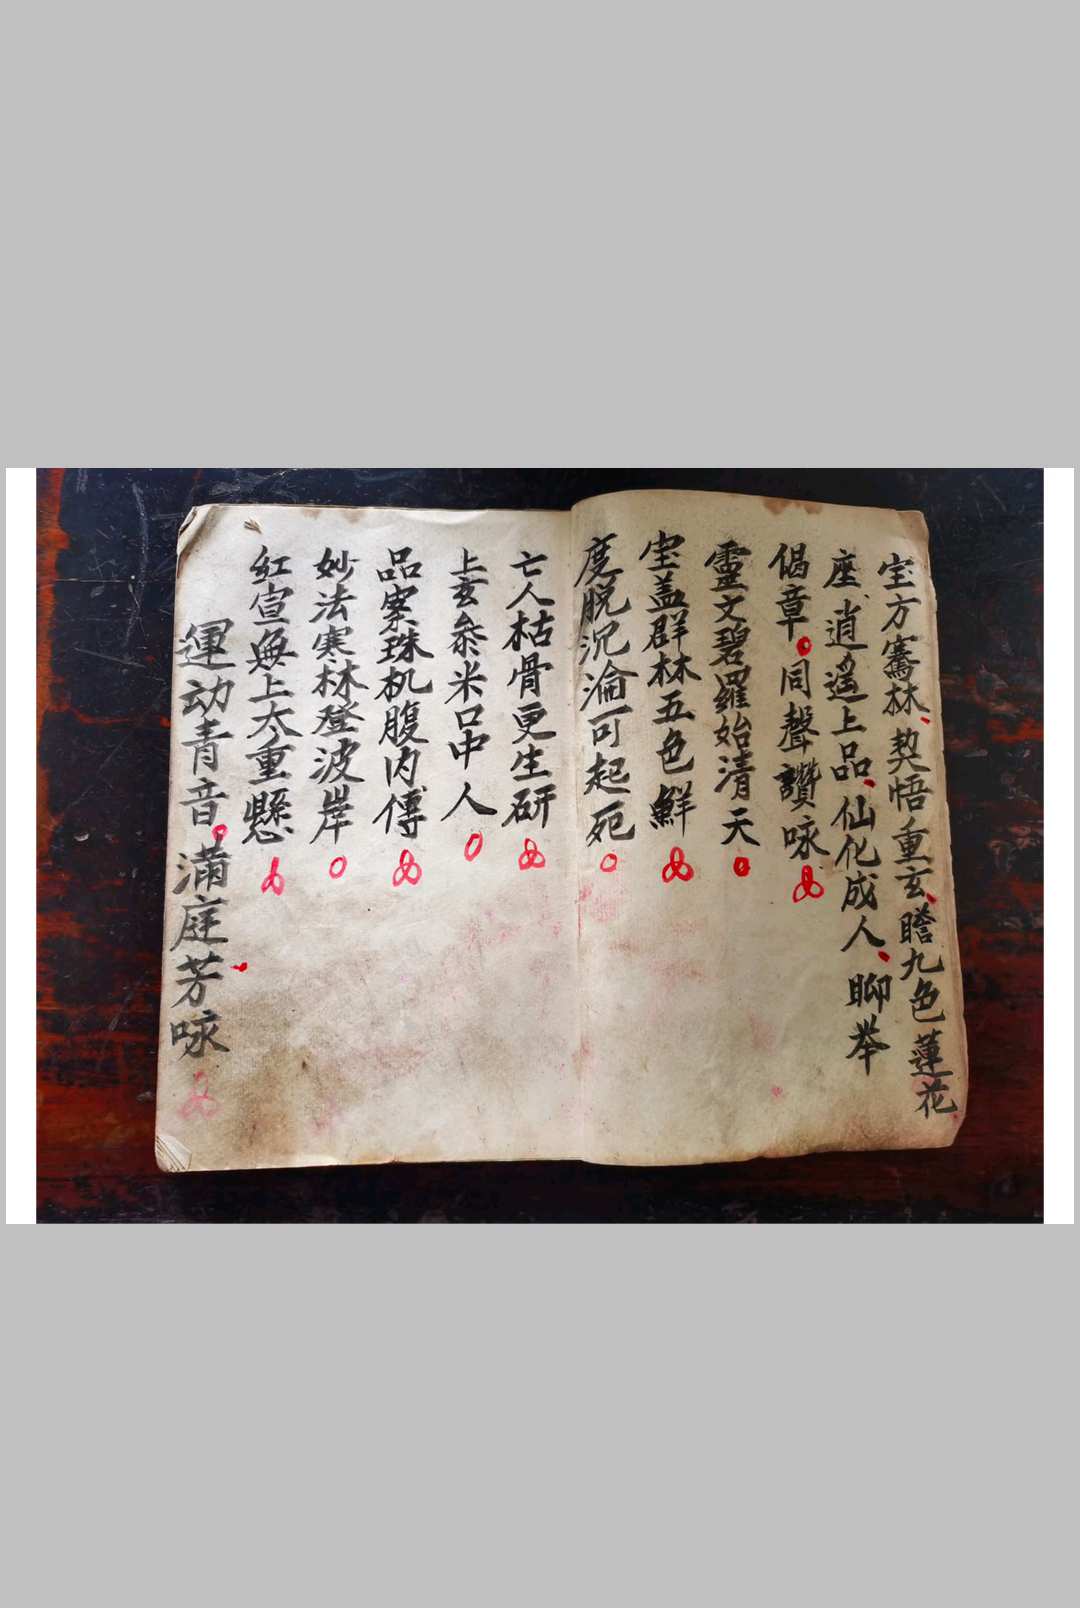 宝方騫林、契悟重玄、瞻九色蓮花
座、逍遥上品、仙化成人、聊举
偈章。同聲讚咏
靈文碧羅始清天
宝盖群林五色鮮
度脱沉淪可起死
亡人枯骨更生研
上玄叅米口中人
品案珠机腹内傳
妙法寒林登波岸
紅宣無上大重懸
運动青音。满庭芳咏